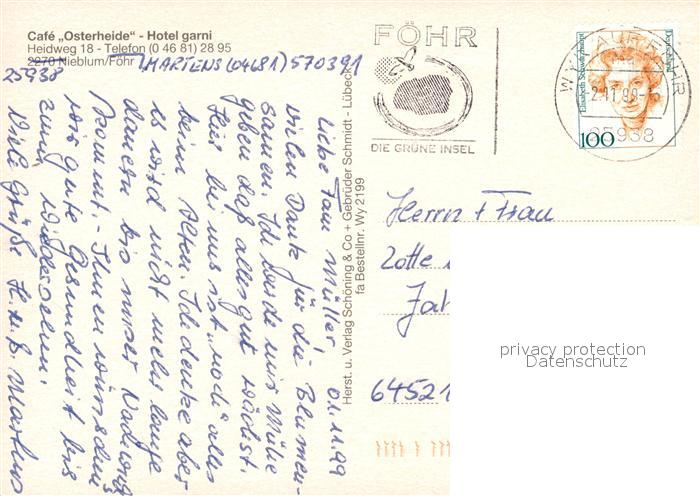 Café „Osterheide" - Hotel garni
Heidweg 18 - Telefon (0 46 81) 28 95
2270 Nieblum/Föhr
25938
MARTENS (04681) 570391
01.11.99
Liebe Fam Müller!
Vielen Dank für die Blumen-
samen. Ich werde mir Mühe
geben daß alles gut wächst.
Hier bei uns ist „noch" alles
beim Alten. Ich denke aber
es wird nicht mehr lange
dauern bis unser
kommt. - Ihnen wünschen
wir gute Gesundheit bis
zum Wiedersehen.
Viele Grüße H. u. B Martens
Herst. u. Verlag Schöning & Co + Gebrüder Schmidt - Lübeck
fa Bestellnr. Wy 2199
FÖHR
DIE GRÜNE INSEL
WYK AUF FÖHR
-2.11.99-
25938
Elisabeth Schwarzhaupt
Deutschland
100
Herrn + Frau
Lotte
64521
privacy protection
Datenschutz